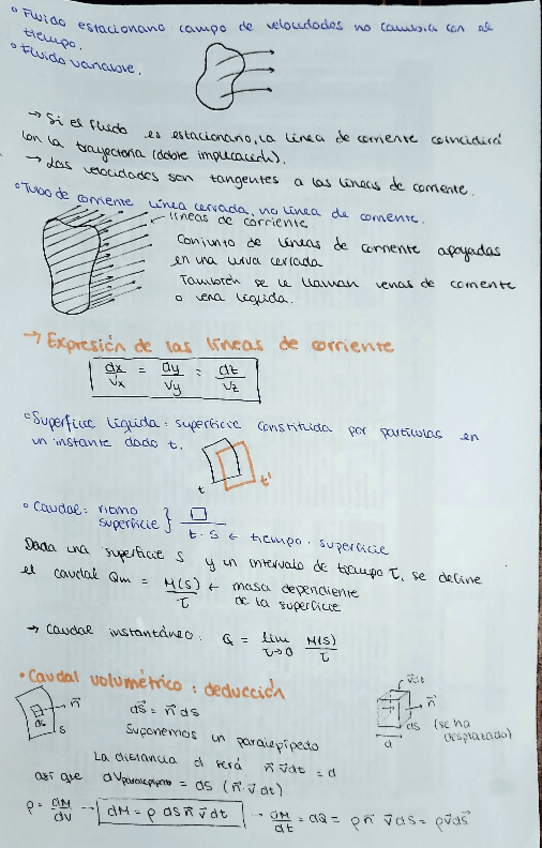 ° Fluido estacionario campo de velocidades no cambia con el
tiempo.
° Fluido variable.
→ Si el fluido es estacionario, la línea de corriente coincidirá
con la trayectoria (doble implicación).
→ Las velocidades son tangentes a las líneas de corriente.
° Tubo de corriente línea cerrada, no línea de corriente.
líneas de corriente.
Conjunto de líneas de corriente apoyadas
en una curva cerrada
También se le llaman venas de corriente
o vena líquida.
→ Expresión de las líneas de corriente
dx/Vx = dy/Vy = dt/Vz
° Superficie líquida: superficie constituida por partículas en
un instante dado t.
t t'
° Caudal: ritmo
superficie } □ / t · s ← tiempo · superficie
Dada una superficie S y un intervalo de tiempo τ, se define
el caudal Qm = M(S)/τ ← masa dependiente
de la superficie
→ Caudal instantáneo: Q = lim τ→0 M(S)/τ
• Caudal volumétrico: deducción
ds n⃗ s
dS⃗ = n⃗ ds
Suponemos un paralepípedo
v⃗dt n⃗ ds d (se ha
desplazado)
La distancia d será n⃗ v⃗ dt = d
así que dVparalepípedo = ds (n⃗ · v⃗ dt)
ρ = dM/dV → dM = ρ ds n⃗ v⃗ dt → dM/dt = dQ = ρ n⃗ v⃗ ds = ρ v⃗ ds⃗